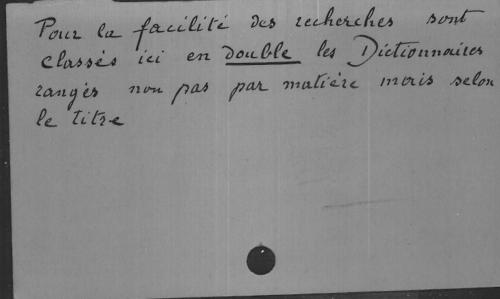 Pour la facilité des recherches sont
classés ici en double les Dictionnaires
rangés non pas par matière mais selon
le titre